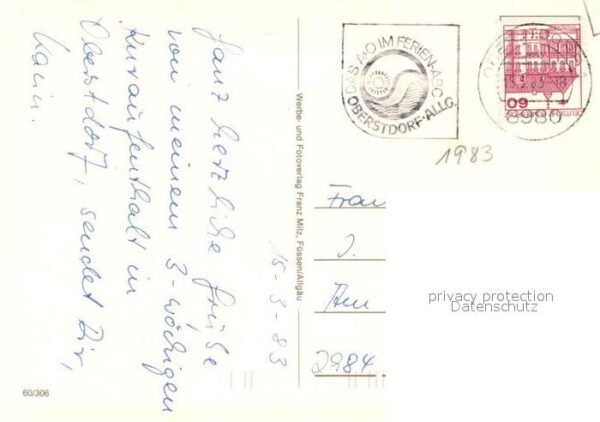 15-3-83
Ganz herzliche Grüße
von meinem 3-wöchigen
Kuraufenthalt in
Oberstdorf, sendet Dir,
Karin.
60/306
Werbe- und Fotoverlag Franz Milz, Füssen/Allgäu
DAS A+O IM FERIEN-ABC
OBERSTDORF·ALLG.
8980
60
1983
Frau
J.
Am
2984
privacy protection
Datenschutz